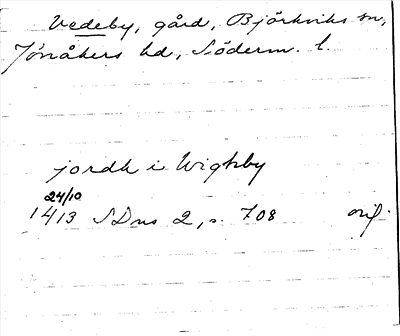 Vedeby, gård, Björkviks sn,
Jönåkers hd, Söderm. l.
jordh i Wighby
24/10
1413 SDns 2, s. 708 orig.